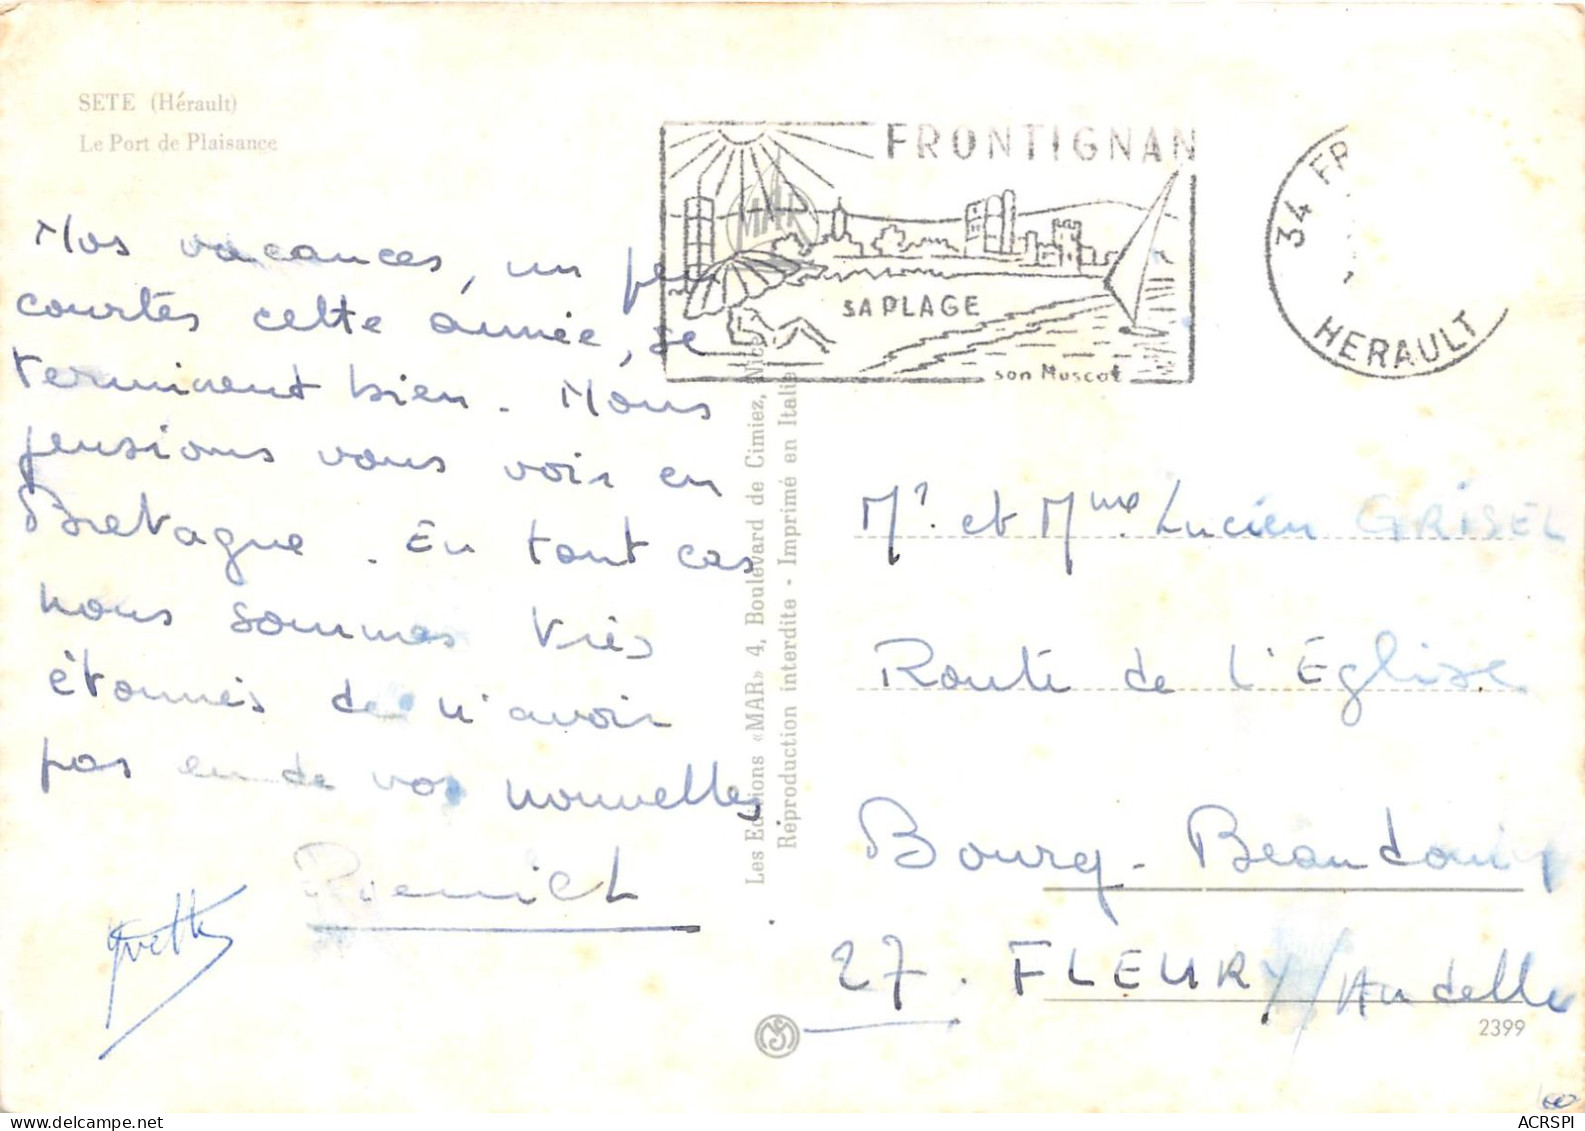 SETE (Hérault)
Le Port de Plaisance
Nos vacances, un peu
courtes cette année, se
terminent bien. Nous
pensions vous voir en
Bretagne. En tout cas
nous sommes très
étonnés de n'avoir
pas eu de vos nouvelles
Yvette
FRONTIGNAN
MAR
SA PLAGE
son Muscat
34 FR
HERAULT
Les Editions «MAR» 4, Boulevard de Cimiez, Nice
Réproduction interdite - Imprimé en Italie
Mr. et Mme. Lucien GRISEL
Route de l'Eglise
Bourg-Beaudouin
27. FLEURY/Andelle
2399
ACRSPI